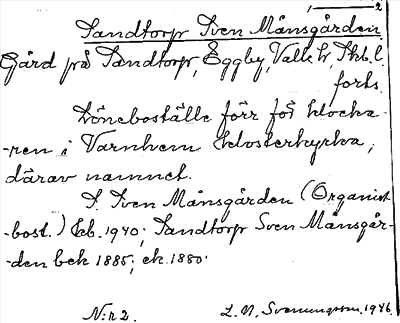 1 — 2
Sandtorp Sven Månsgården
Gård på Sandtorp, Eggby, Valle hd, Skb. l.
forts.
Löneboställe förr för klocka-
-ren i Varnhem klosterkyrka,
därav namnet.
S. Sven Månsgården (Organist
-bost.) Eb. 1940; Sandtorp Sven Månsgår-
-den bek 1885; ek. 1880.
N:r 2. L. M. Svenungsson. 1946.